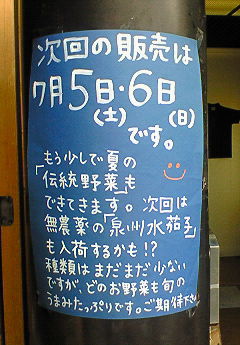 次回の販売は
7月5日・6日
(土) (日)
です。
もう少しで夏の
「伝統野菜」も
でてきます。次回は
無農薬の「泉州水茄子」
も入荷するかも!?
種類はまだまだ少ない
ですが、どのお野菜も旬の
うまみたっぷりです。ご期待下さい